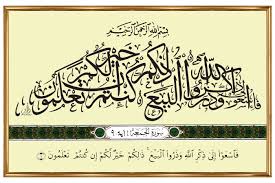 بِسْمِ اللَّهِ الرَّحْمَٰنِ الرَّحِيمِ
فَاسْعَوْا إِلَىٰ ذِكْرِ اللَّهِ وَذَرُوا الْبَيْعَ ذَٰلِكُمْ خَيْرٌ لَكُمْ إِنْ كُنْتُمْ تَعْلَمُونَ
سورة الجمعة آية ٩
فَاسْعَوْا إِلَىٰ ذِكْرِ اللَّهِ وَذَرُوا الْبَيْعَ ۚ ذَٰلِكُمْ خَيْرٌ لَكُمْ إِنْ كُنْتُمْ تَعْلَمُونَ